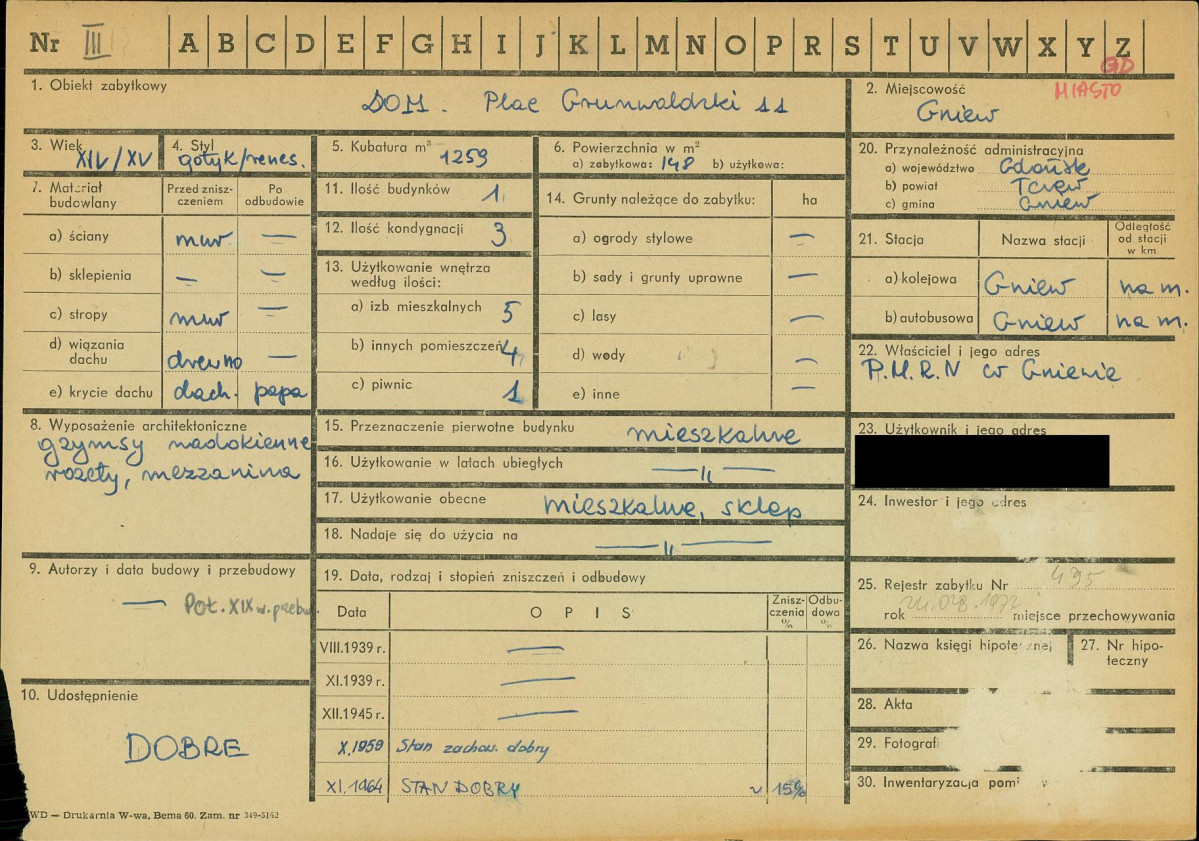 Nr III A B C D E F G H I J K L M N O P R S T U V W X Y Z
GD
MIASTO
1. Obiekt zabytkowy
DOM. Plac Grunwaldzki 11
2. Miejscowość
Gniew
3. Wiek
XIV/XV
4. Styl
gotyk/renes.
5. Kubatura m³ 1259
6. Powierzchnia w m²
a) zabytkowa: 148 b) użytkowa:
20. Przynależność administracyjna
a) województwo Gdańsk
b) powiat Tczew
c) gmina Gniew
7. Materiał budowlany
Przed zniszczeniem
Po odbudowie
a) ściany mur —
b) sklepienia — —
c) stropy mur —
d) wiązania dachu drewno —
e) krycie dachu dach. papa
11. Ilość budynków 1
12. Ilość kondygnacji 3
13. Użytkowanie wnętrza
według ilości:
a) izb mieszkalnych 5
b) innych pomieszczeń 4
c) piwnic 1
14. Grunty należące do zabytku: ha
a) ogrody stylowe —
b) sady i grunty uprawne —
c) lasy —
d) wody —
e) inne —
21. Stacja Nazwa stacji Odległość od stacji w km
a) kolejowa Gniew na m.
b) autobusowa Gniew na m.
22. Właściciel i jego adres
P.M.R.N w Gniewie
8. Wyposażenie architektoniczne
gzymsy nadokienne
rozety, mezzanina
15. Przeznaczenie pierwotne budynku mieszkalne
16. Użytkowanie w latach ubiegłych —"—
17. Użytkowanie obecne mieszkalne, sklep
18. Nadaje się do użycia na —"—
23. Użytkownik i jego adres
24. Inwestor i jego adres
9. Autorzy i data budowy i przebudowy
— Poł. XIX w. przebud.
19. Data, rodzaj i stopień zniszczeń i odbudowy
Data OPIS Zniszczenia % Odbudowa %
VIII.1939 r. —
XI.1939 r. —
XII.1945 r. —
X.1959 Stan zachow. dobry
XI.1964 STAN DOBRY ~ 15%
25. Rejestr zabytku Nr 495
rok 24.08.1972 miejsce przechowywania
26. Nazwa księgi hipotecznej
27. Nr hipoteczny
28. Akta
29. Fotografi
30. Inwentaryzacja pomi
10. Udostępnienie
DOBRE
WD — Drukarnia W-wa, Bema 60. Zam. nr 349-5162